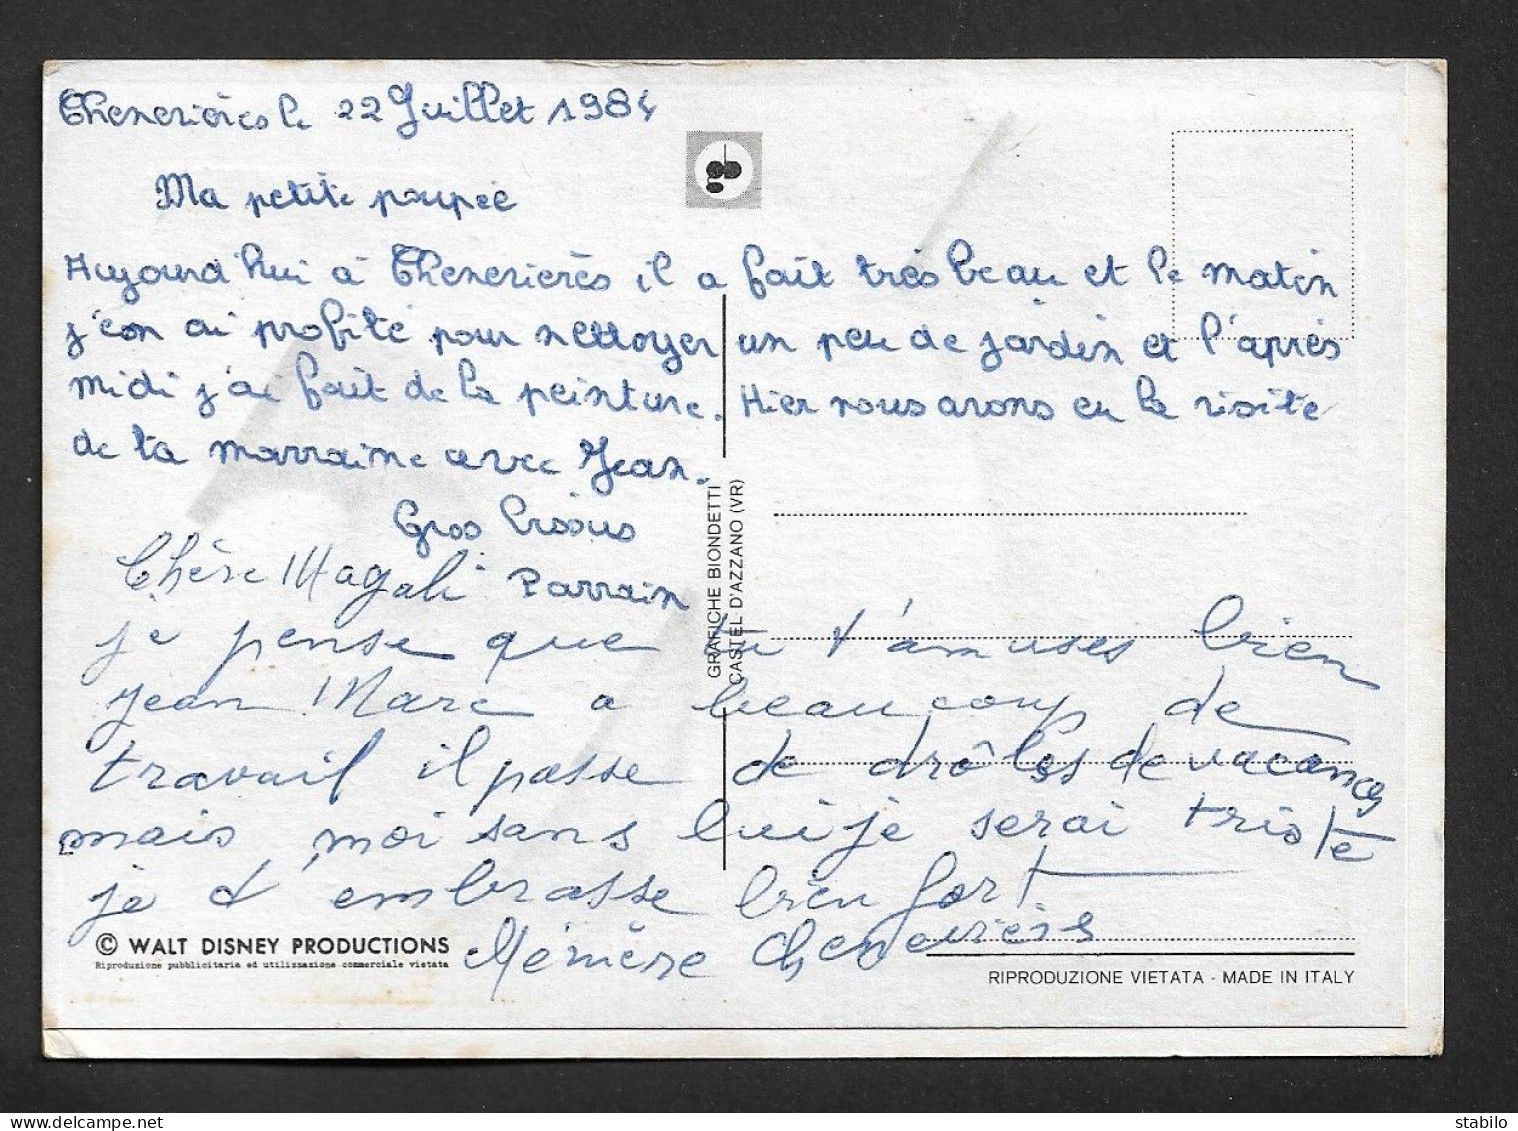 Chenerières le 22 Juillet 1984
Ma petite poupée
Aujourd'hui à Chenerières il a fait très beau et le matin
j'en ai profité pour nettoyer un peu de jardin et l'après
midi j'ai fait de la peinture. Hier nous avons eu la visite
de ta marraine avec Jean.
Gros bisous
Parrain
Chère Magali
je pense que tu t'amuses bien
Jean Marc a beaucoup de
travail il passe de drôles de vacances
mais moi sans lui je serai triste
je t'embrasse bien fort
Mémère Chenerières
© WALT DISNEY PRODUCTIONS
Riproduzione pubblicitaria ed utilizzazione commerciale vietata
GRAFICHE BIONDETTI
CASTEL D'AZZANO (VR)
RIPRODUZIONE VIETATA - MADE IN ITALY
stabilo